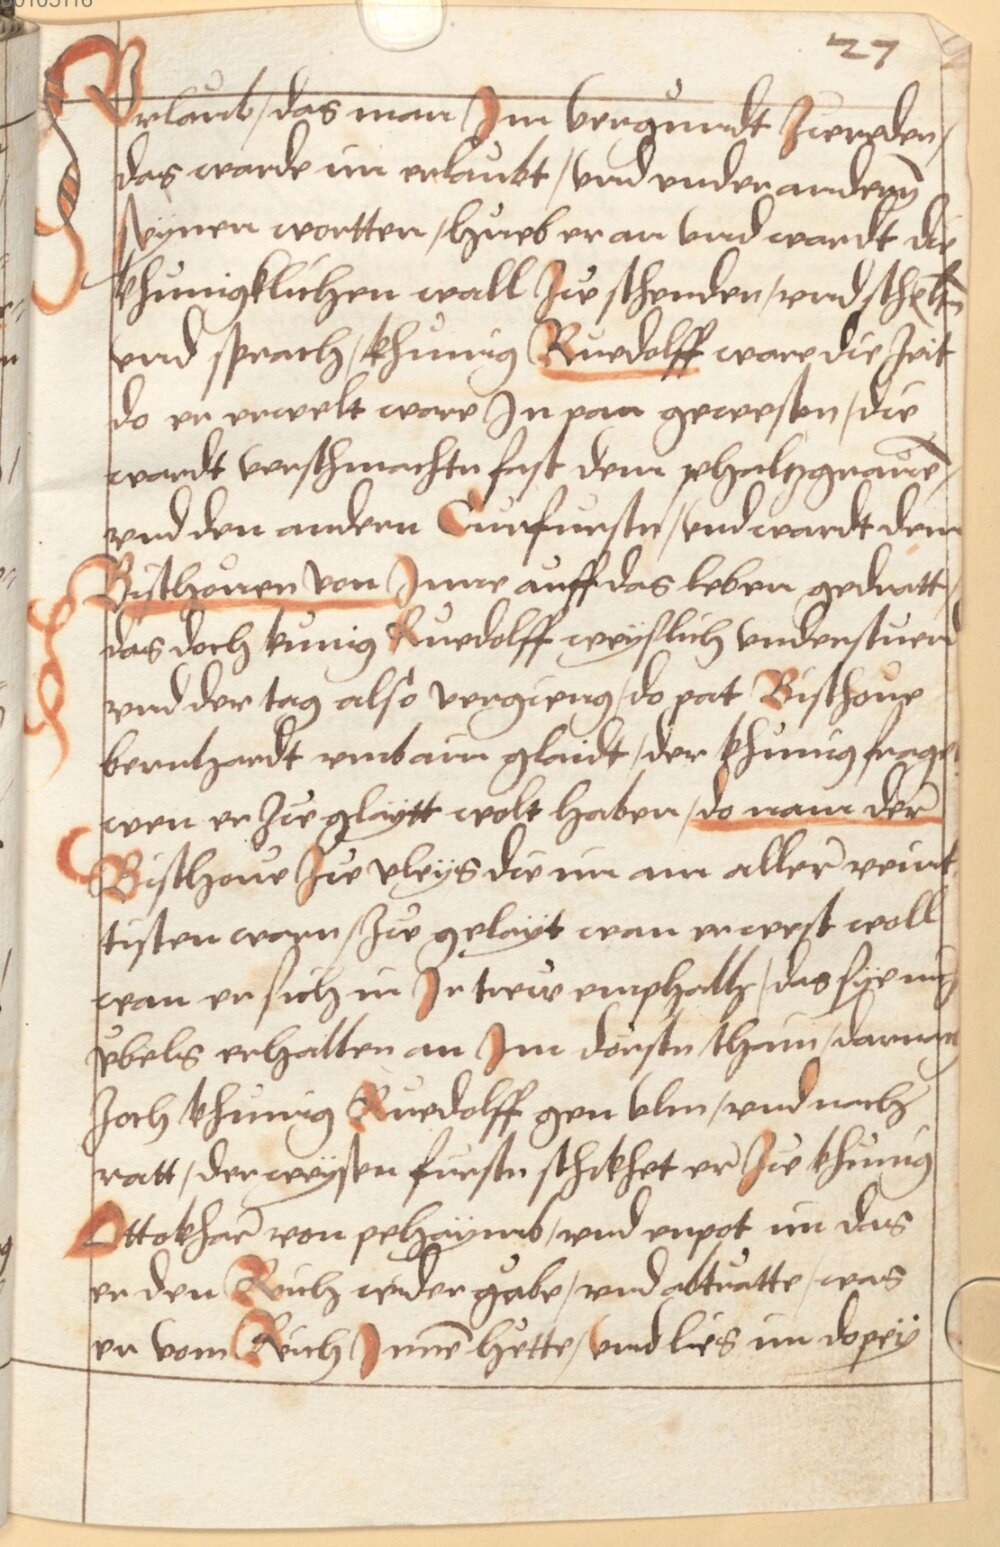 27
Vrlaub / das man Im vergundt Zwreden /
das warde im erlaubt / vnd vnder andernn
seÿnen wortten / hueb er an vnd wardt die
khunigklichen wall Zw schenden / vnd schelten
vnd sprach / khunig Ruedolff ware die Zeit
do er erwelt ware In pan gewesen / die
wardt verschmachtn fast dem phaltzgraue /
vnd den andern Curfurstn / vnd wardt dem
Bischouen von Inne auff das leben gedratt /
das doch kunig Ruedolff weÿslich vnderstuend
vnd der tag also vergieng / do pat Bischoue
bernhardt vmb ain glaidt / der khunig fraget
wen er Zw glaÿtt wolt haben / do nam der
Bischoue Zw vleÿs die im am aller veint
tisten warn / Zw gelaÿt wan er west woll
wan er sich in Ir trew emphalh / das sÿe nit
vbels erhalten an Im dorstn thain / darnach
Zoch khunig Ruedolff gen vlm / vnd nach
ratt / der weÿsen furstn schikhet er Zw khunig
Ottokhar von pehaÿmb / vnd enpot im das
er den Reich wider gabe / vnd abtratte / was
er vom Reich Inne hette / vnd lies im dopeÿ